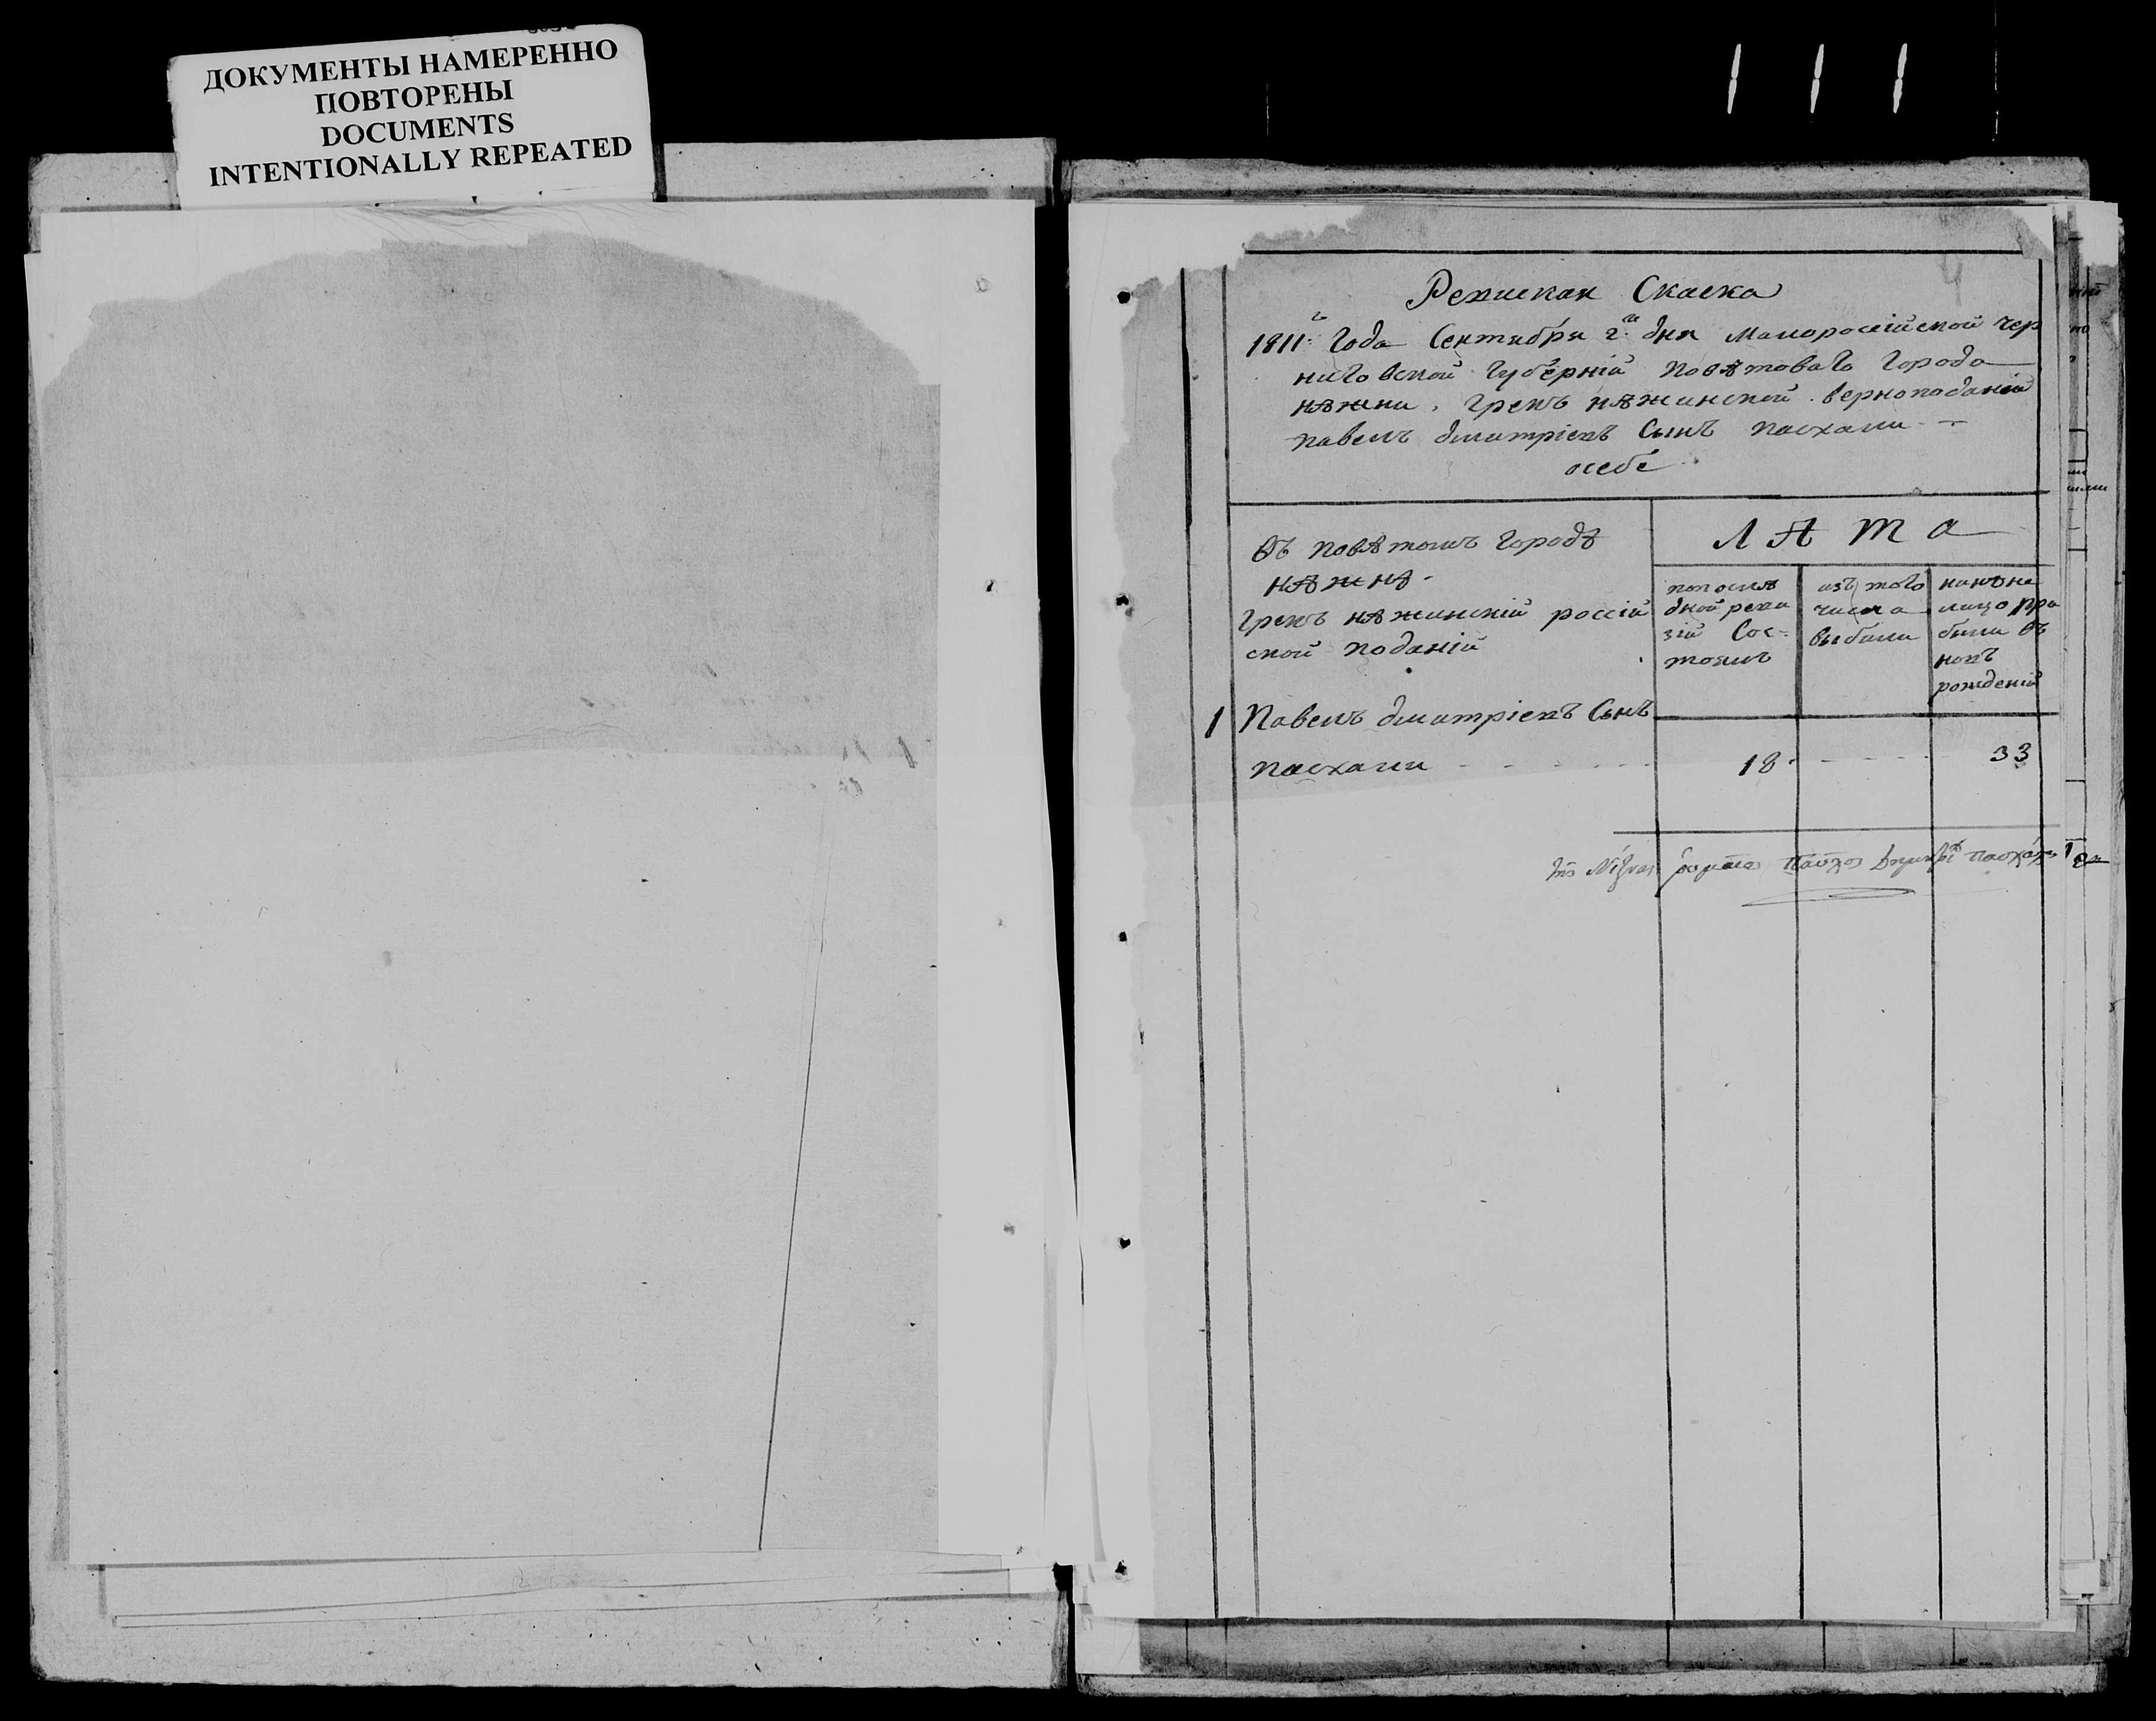 ДОКУМЕНТЫ НАМЕРЕННО
ПОВТОРЕНЫ
DOCUMENTS
INTENTIONALLY REPEATED
4
Скаска
1811: года Сентября 2: дня Малоросійской Чер
ниговской Губерніи повѣтоваго города
нѣжина, грекъ нѣжинской верноподаній
павелъ дмитріевъ Сынъ пасхали
осебе
Въ повѣтомъ городѣ
нѣжнѣ
грекъ нѣжинскій россій
ской поданій
ЛѢТА
попослѣ
дной реви
зіи Сос-
тоялъ
изъ того
числа
выбыли
нинѣ на
лицо при
были въ
новъ
рожденій
1 Павелъ дмитріевъ Сынъ
пасхали 18 33